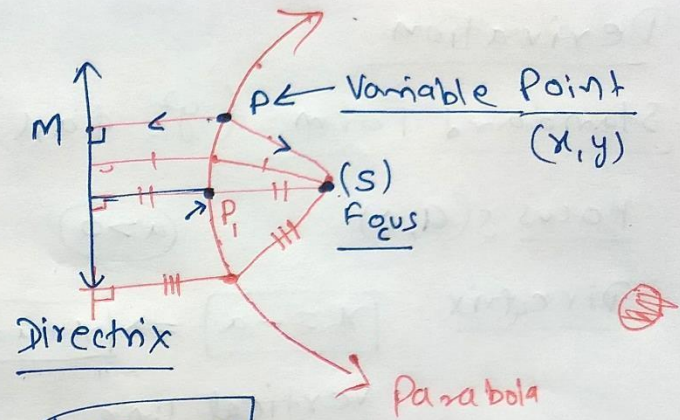 P ← Variable Point
(x, y)
M
(S)
Focus
P₁
Directrix
Parabola